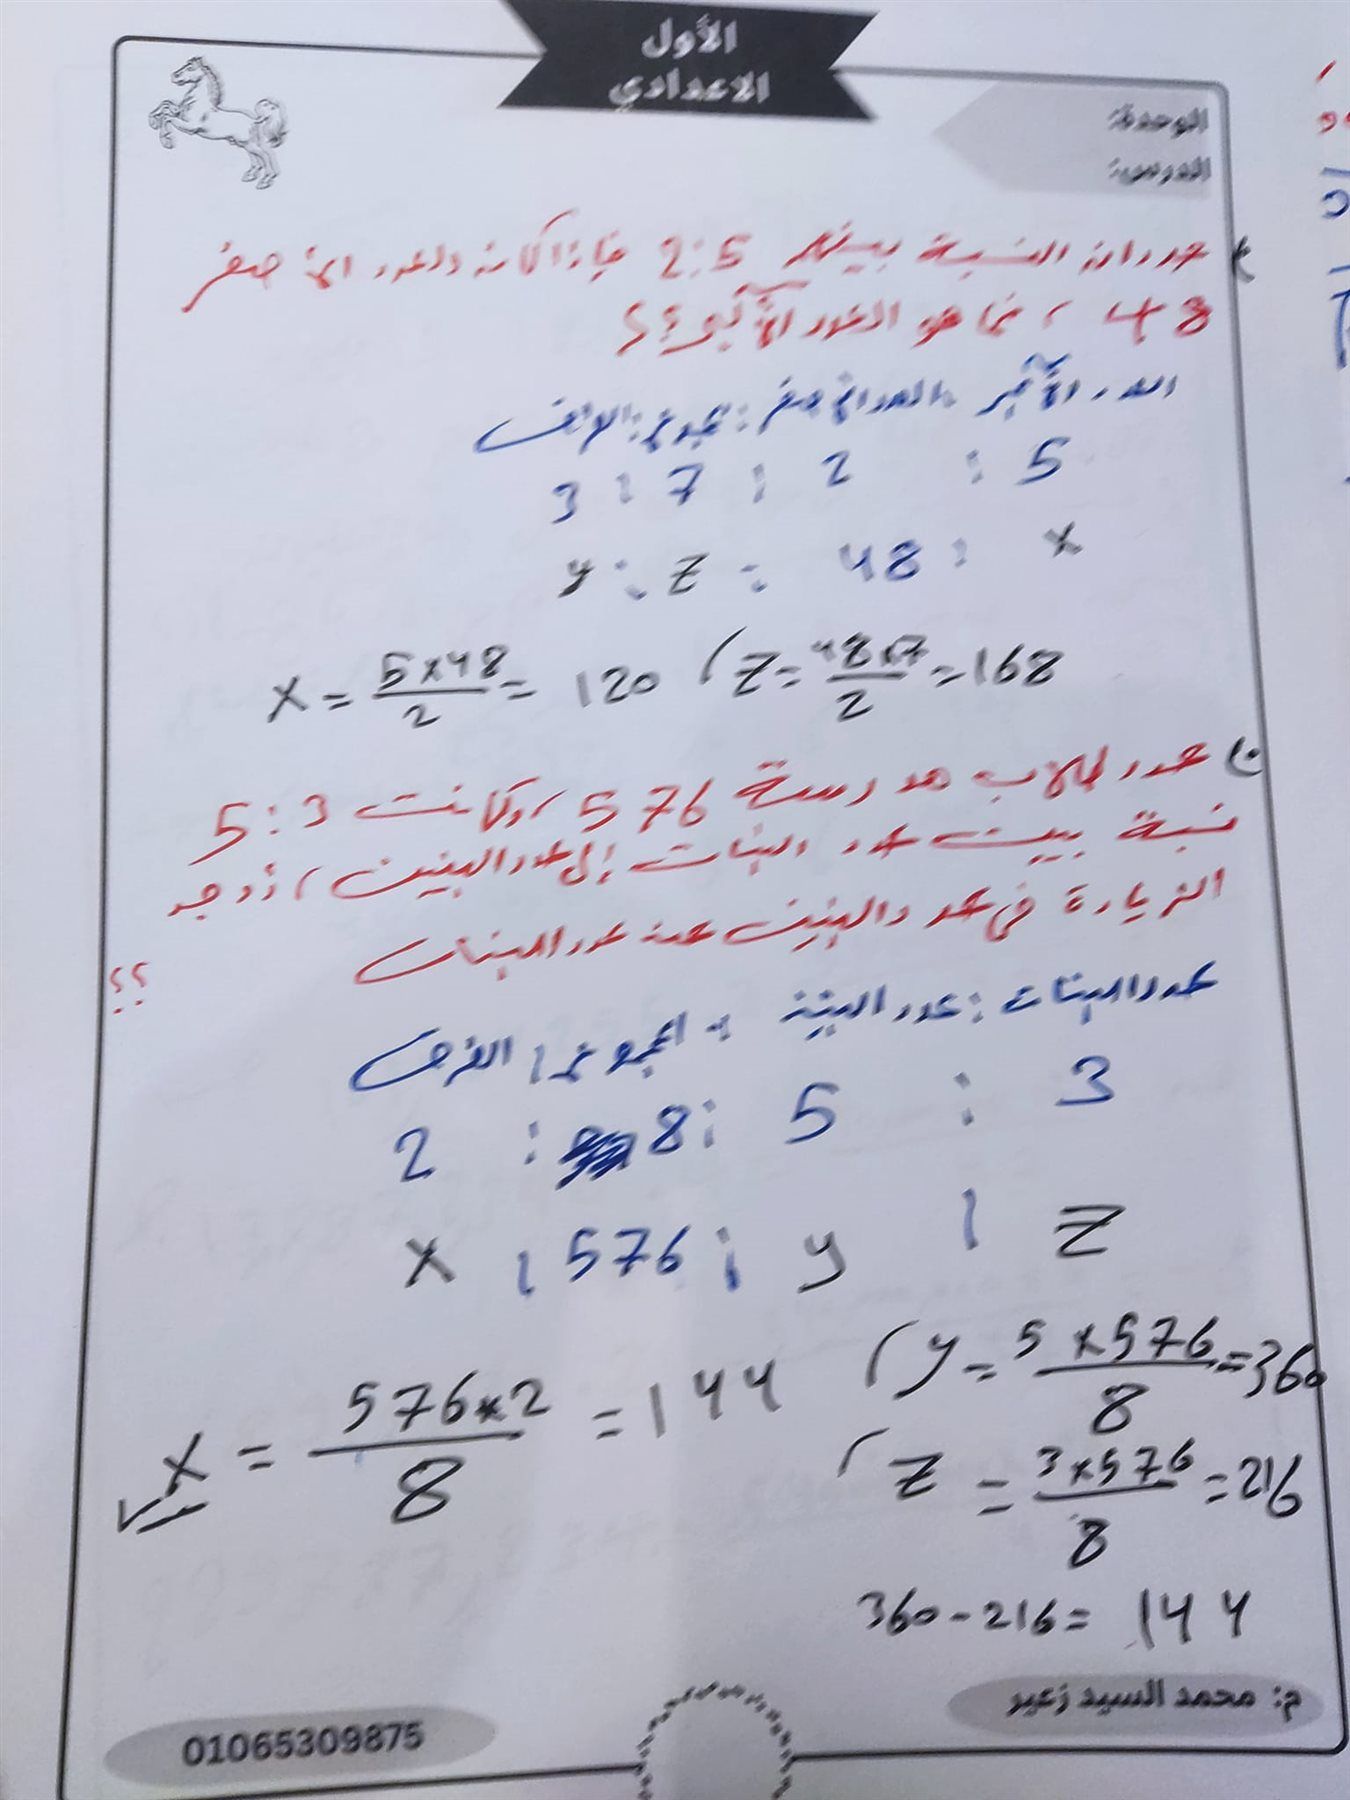 الأول
الاعدادي
الوحدة:
الدرس:
عددان النسبة بينهم 2:5 فإذا كان العدد الأصغر
48 ، فما هو العدد الأكبر؟؟
العدد الأكبر : العدد الأصغر : مجموع : الفرق
5 : 2 : 7 : 3
x : 48 : z : y
x = 5×48/2 = 120 ( z = 48×7/2 = 168
عدد طلاب مدرسة 576 ، وكانت 5:3
نسبة بين عدد البنات إلى عدد البنين ، أوجد
الزيادة في عدد البنين عن عدد البنات
؟؟
عدد البنات : عدد البنين : المجموع : الفرق
3 : 5 : 8 : 2
z : y : 576 : x
x = 576×2/8 = 144 ( y = 5×576/8 = 360
( z = 3×576/8 = 216
360-216= 144
م: محمد السيد زعير
01065309875